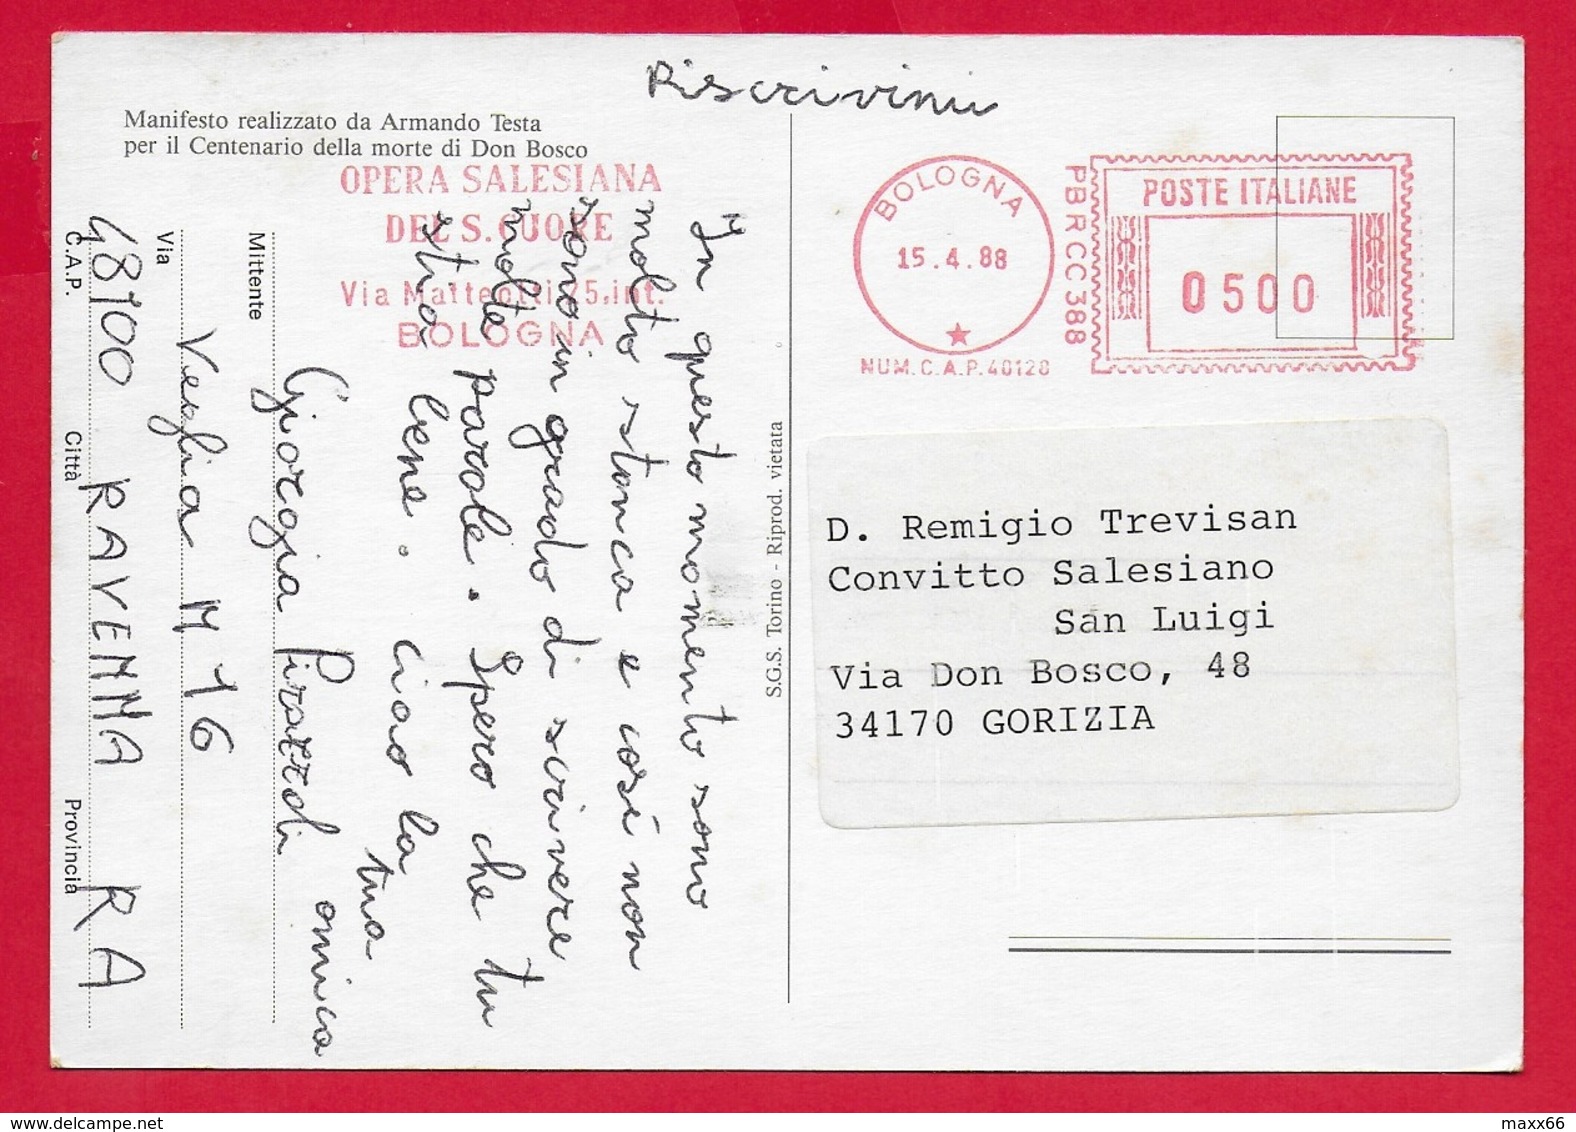 Riscrivimi
Manifesto realizzato da Armando Testa
per il Centenario della morte di Don Bosco
OPERA SALESIANA
DEL S. CUORE
Via Matteotti 25, int.
BOLOGNA
In questo momento sono
molto stanca e così non
sono in grado di scrivere
molte parole. Spero che tu
stia bene. Ciao la
tua
amica
Giorgia
Mittente
Via Veglia N 16
48100 RAVENNA RA
C.A.P. Città Provincia
S.G.S. Torino - Riprod. vietata
BOLOGNA
15.4.88
NUM.C.A.P.40128
PBRCC388
POSTE ITALIANE
0500
D. Remigio Trevisan
Convitto Salesiano
San Luigi
Via Don Bosco, 48
34170 GORIZIA
delcampe.net
maxx66